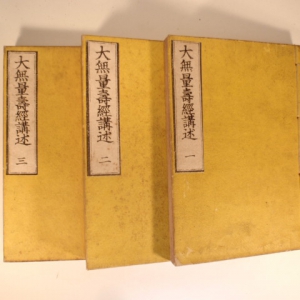 大無量壽經講述 一
大無量壽經講述 二
大無量壽經講述 三